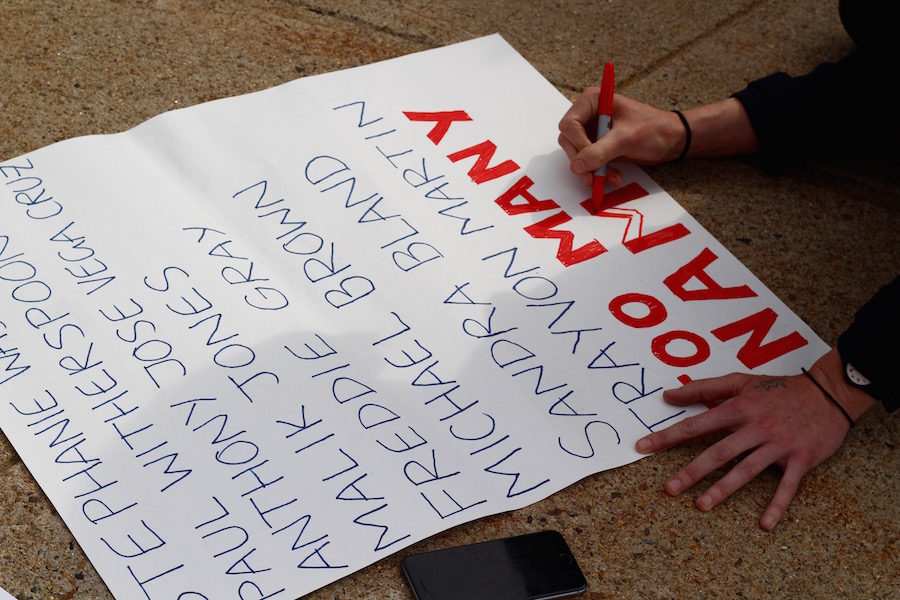 NAM
TOO MANY
TRAYVON MARTIN
SANDRA BLAND
MICHAEL BROWN
FREDDIE GRAY
MALIK JONES
ANTHONY JOSE VEGA CRUZ
PAUL WITHERSPOON
TEPHANIE WAS